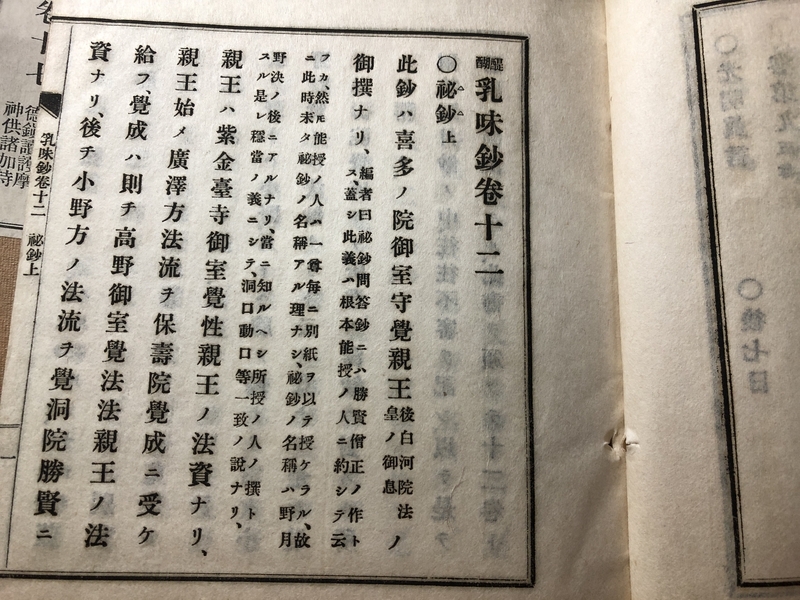 醍醐乳味鈔卷十二
〇祕鈔上
此鈔ハ喜多ノ院御室守覺親王後白河院法皇ノ御息ノ
御撰ナリ、編者曰祕鈔問答鈔ニハ勝賢僧正ノ作ト
ス、蓋シ此義ハ根本能授ノ人ニ約シテ云
フカ、然モ能授ノ人ハ一尊每ニ別紙ヲ以テ授ケラル、故
ニ此時未タ祕鈔ノ名稱アル理ナシ、祕鈔ノ名稱ハ野月
野決ノ後ニアルナリ、當ニ知ルヘシ所授ノ人ノ撰ト
スル是レ穩當ノ義ニシテ、洞口動口等一致ノ說ナリ、
親王ハ紫金臺寺御室覺性親王ノ法資ナリ、
親王始メ廣澤方法流ヲ保壽院覺成ニ受ケ
給フ、覺成ハ則チ高野御室覺法法親王ノ法
資ナリ、後チ小野方ノ法流ヲ覺洞院勝賢ニ
乳味鈔卷十二 祕鈔上
一
神供諸加持
〇後七日